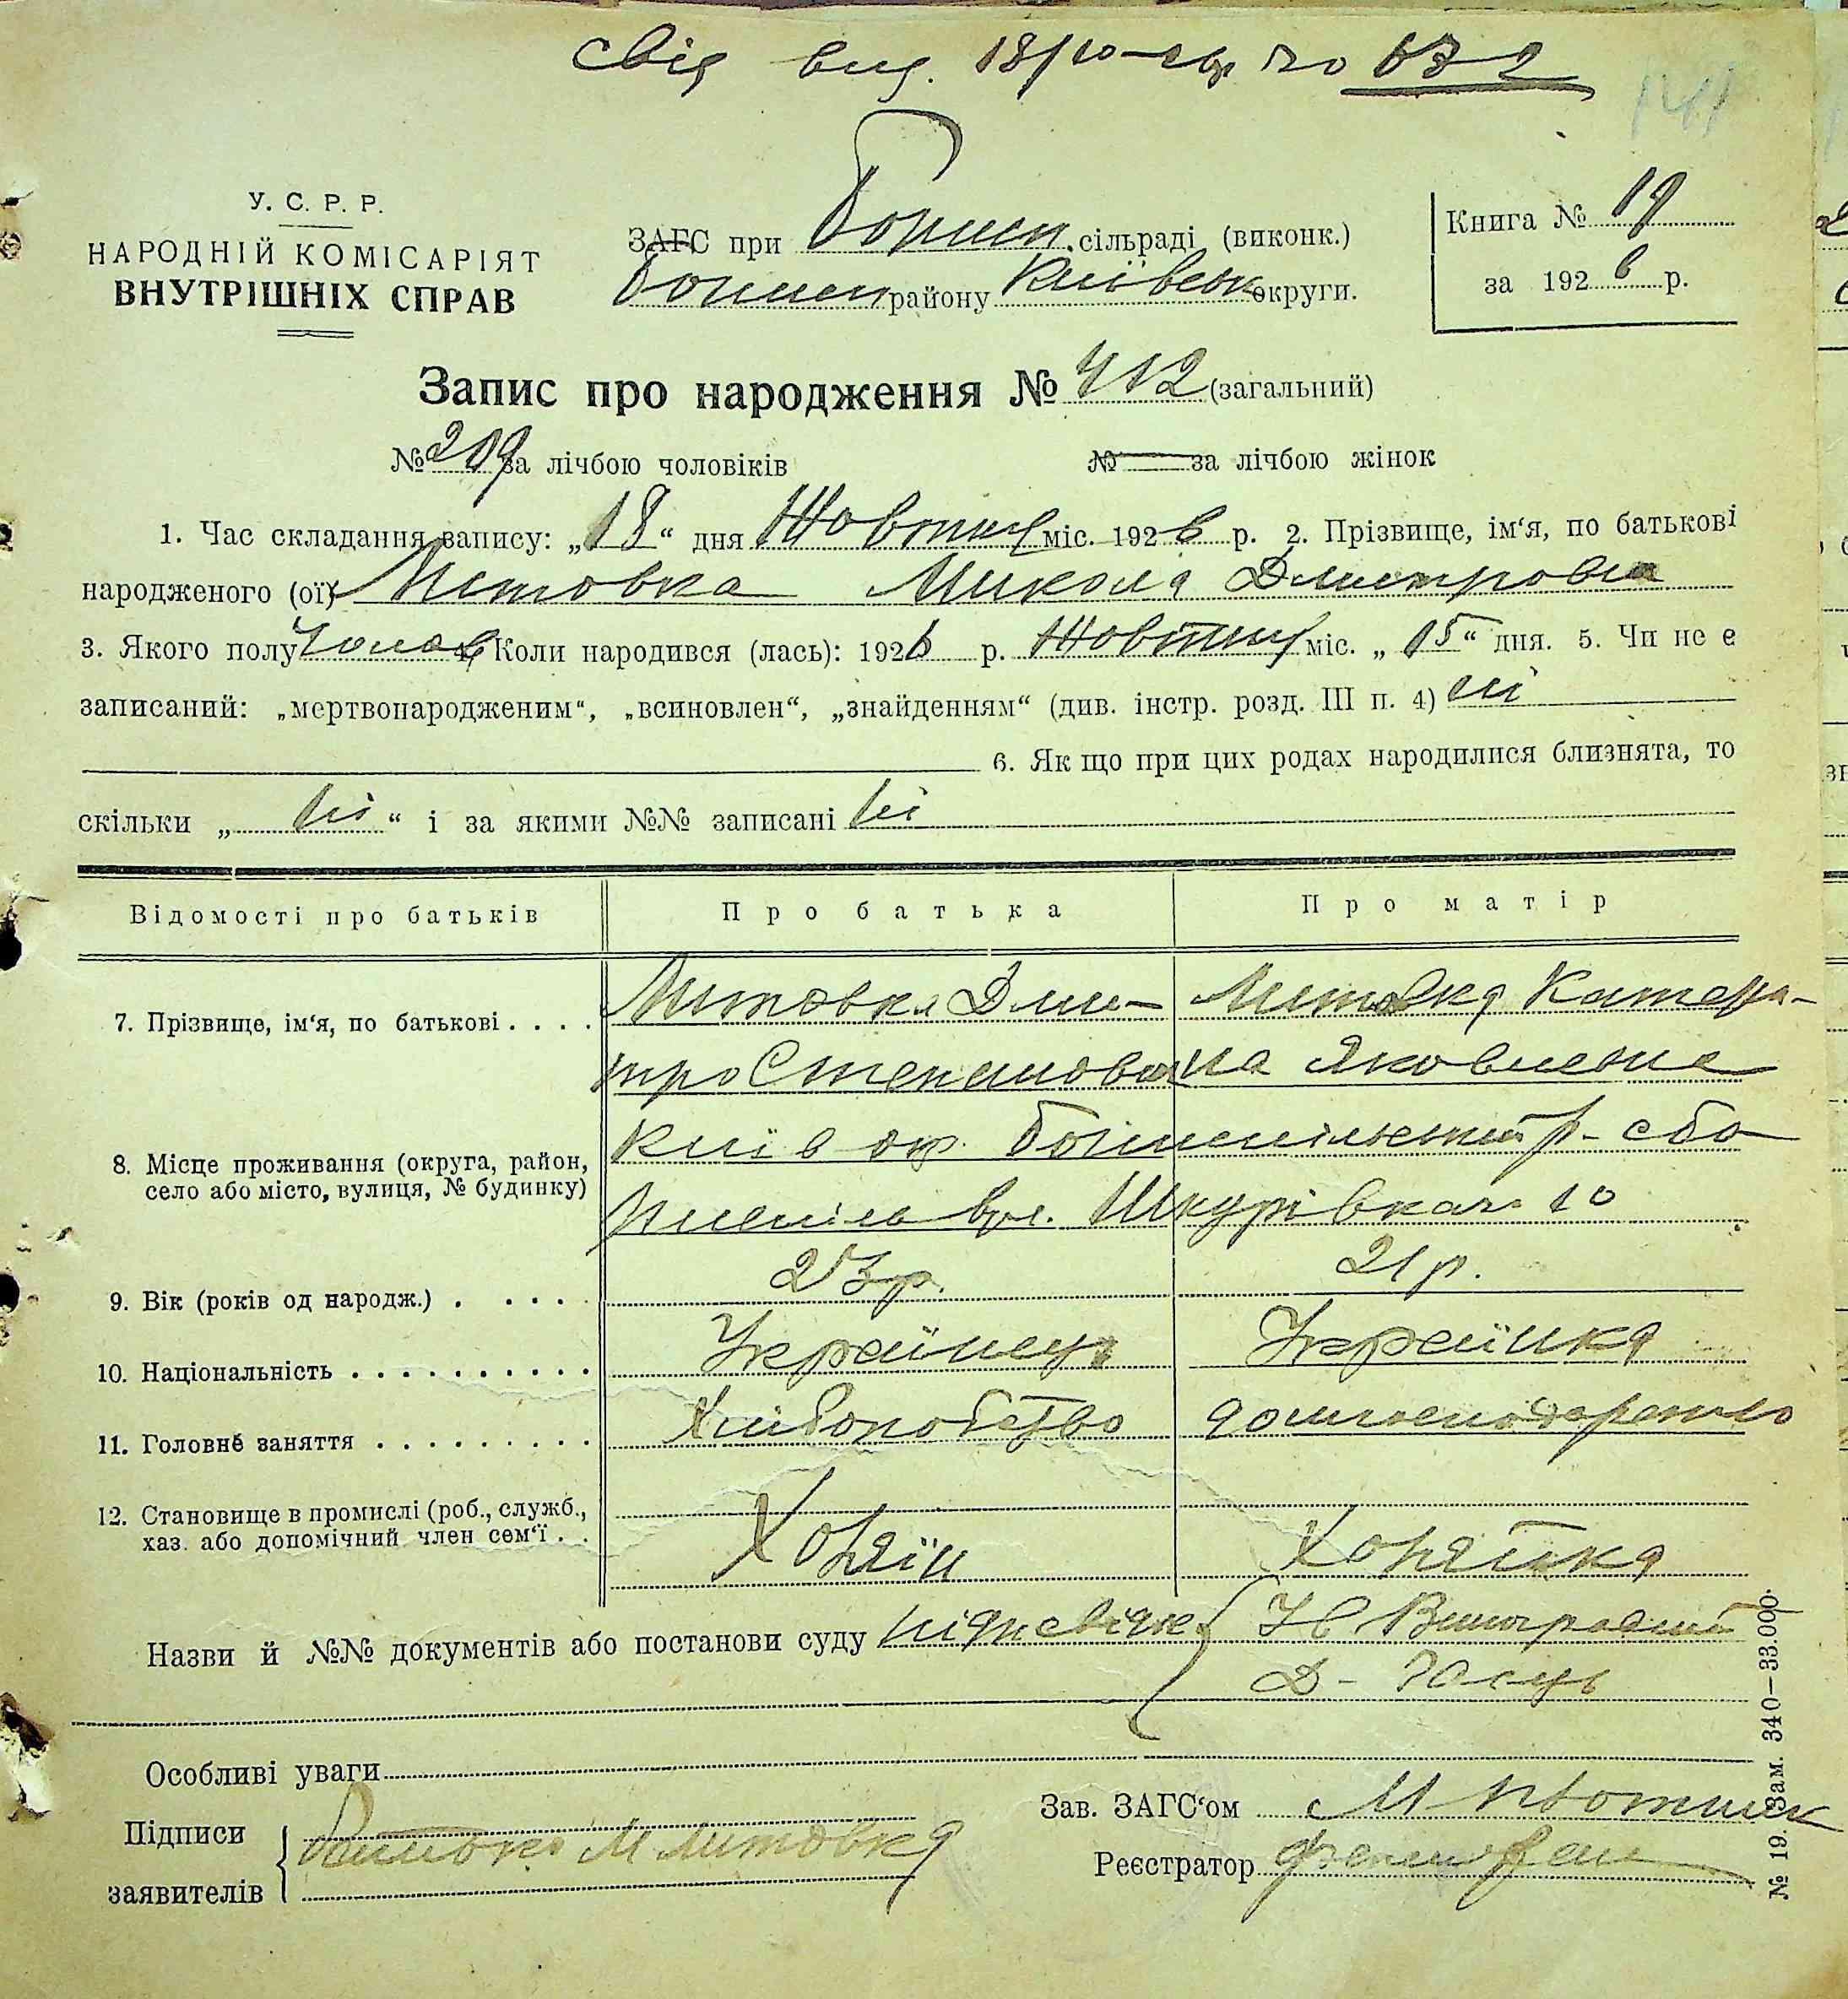 Свід вид. 18/10-26р № 632
141
У. С. Р. Р.
НАРОДНІЙ КОМІСАРІЯТ
ВНУТРІШНІХ СПРАВ
ЗАГС при Борисп. сільраді (виконк.)
Борисп району Київськ округи.
Книга № 19
за 1926 р.
Запис про народження № 412 (загальний)
№ 209 за лічбою чоловіків № — за лічбою жінок
1. Час складання запису: „18“ дня Жовтня міс. 1926 р. 2. Прізвище, ім‘я, по батькові
народженого (ої) Литовка Микола Дмитрович
3. Якого полу Чолов 4. Коли народився (лась): 1926 р. Жовтня міс. „15“ дня. 5. Чи не є
записаний: „мертвонародженим“, „всиновлен“, „знайденням“ (див. інстр. розд. III п. 4) ні
6. Як що при цих родах народилися близнята, то
скільки „ ні “ і за якими №№ записані ні
Відомості про батьків Про батька Про матір
7. Прізвище, ім‘я, по батькові . . . . Литовка Дми- Литовка Катери-
тро Степанович на Яковлевна
8. Місце проживання (округа, район,
село або місто, вулиця, № будинку)
Київ окр. Бориспільський р-
вул. Шкурівка 10
9. Вік (років од народж.) . . . . . 23 р. 21 р.
10. Національність . . . . . . . . . . Українець Українка
11. Головне заняття . . . . . . . . . Хліборобство домогосподаренню
12. Становище в промислі (роб., служб.,
хаз. або допомічний член сем‘ї . .
Хозяїн Хозяйка
Назви й №№ документів або постанови суду
Д-
Особливі уваги
Підписи
заявителів
Литовка
Зав. ЗАГС‘ом
Реєстратор
№ 19. Зам. 340—33.000.